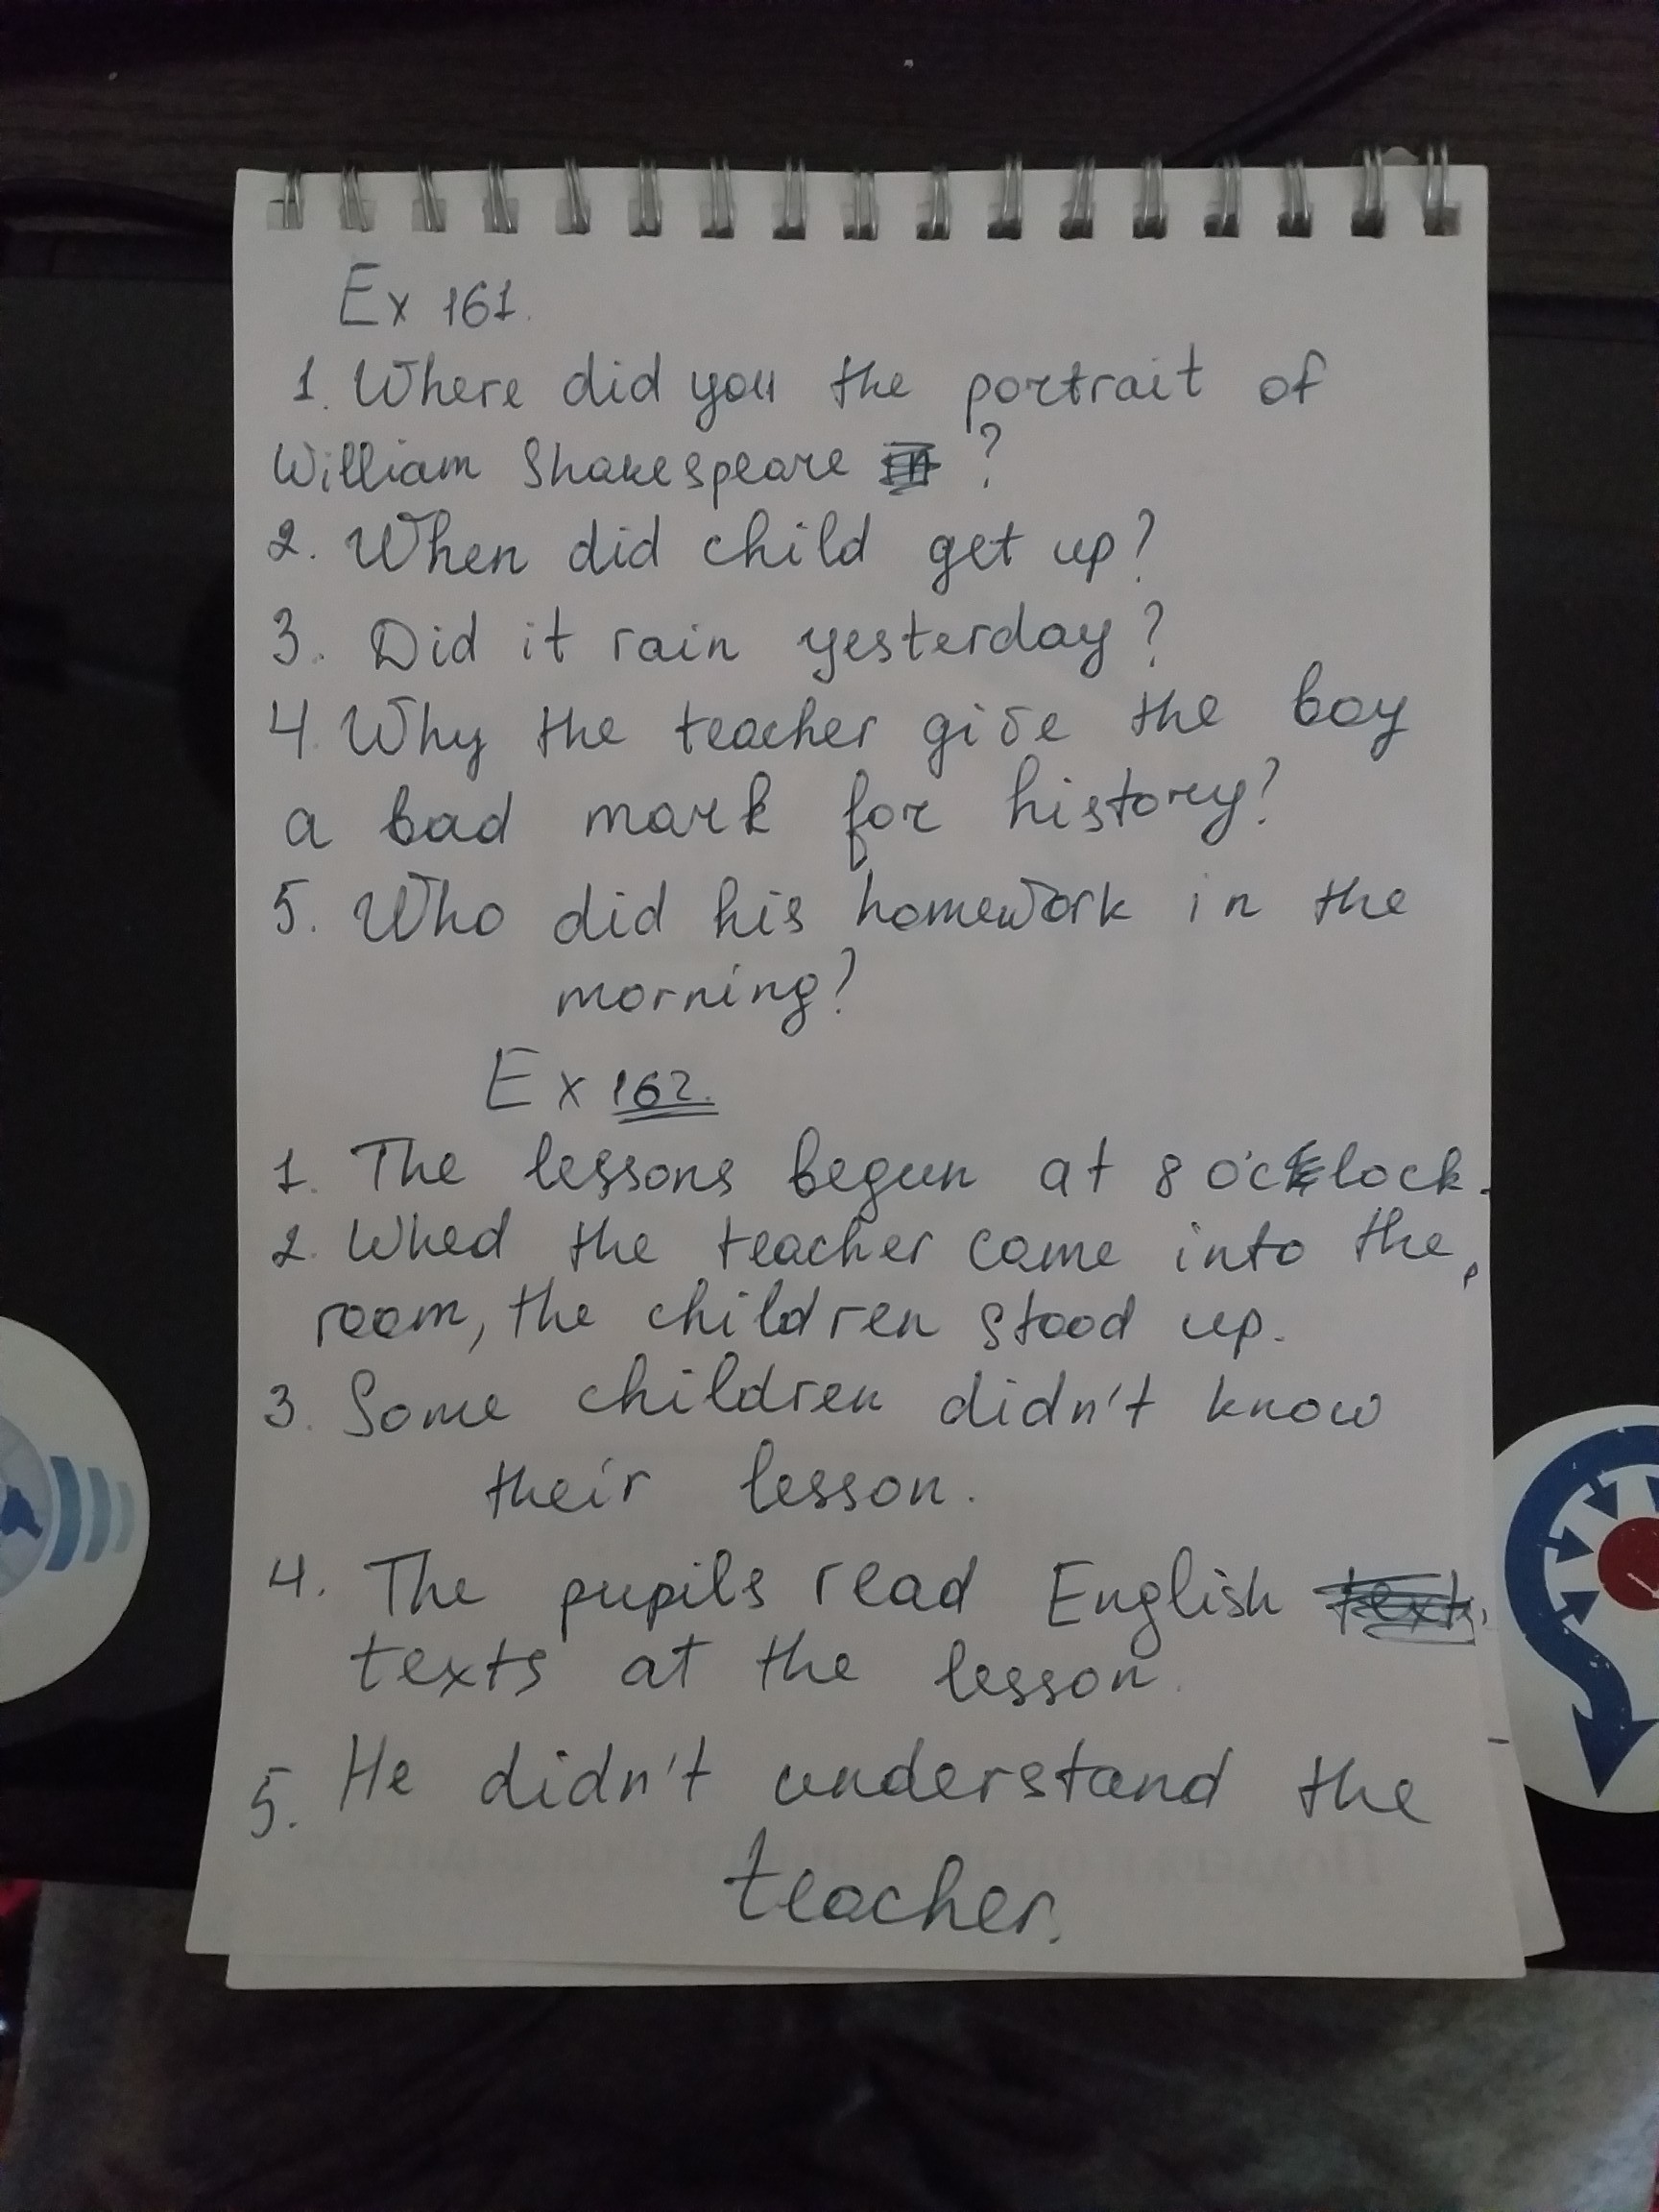 Ex 161.
1. Where did you the portrait of
William Shakespeare ?
2. When did child get up?
3. Did it rain yesterday?
4. Why the teacher give the boy
a bad mark for history?
5. Who did his homework in the
morning?
Ex 162.
1. The lessons begun at 8 o'clock.
2. Whed the teacher came into the,
room, the children stood up.
3. Some children didn't know
their lesson.
4. The pupils read English
texts at the lesson.
5. He didn't understand the
teacher.